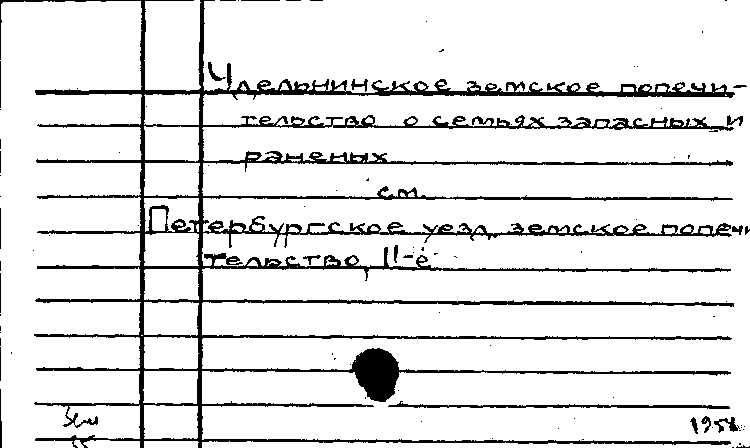 Удельнинское земское попечи-
тельство о семьях запасных и
раненых
см.
Петербургское уезд. земское попечи
тельство, II-е